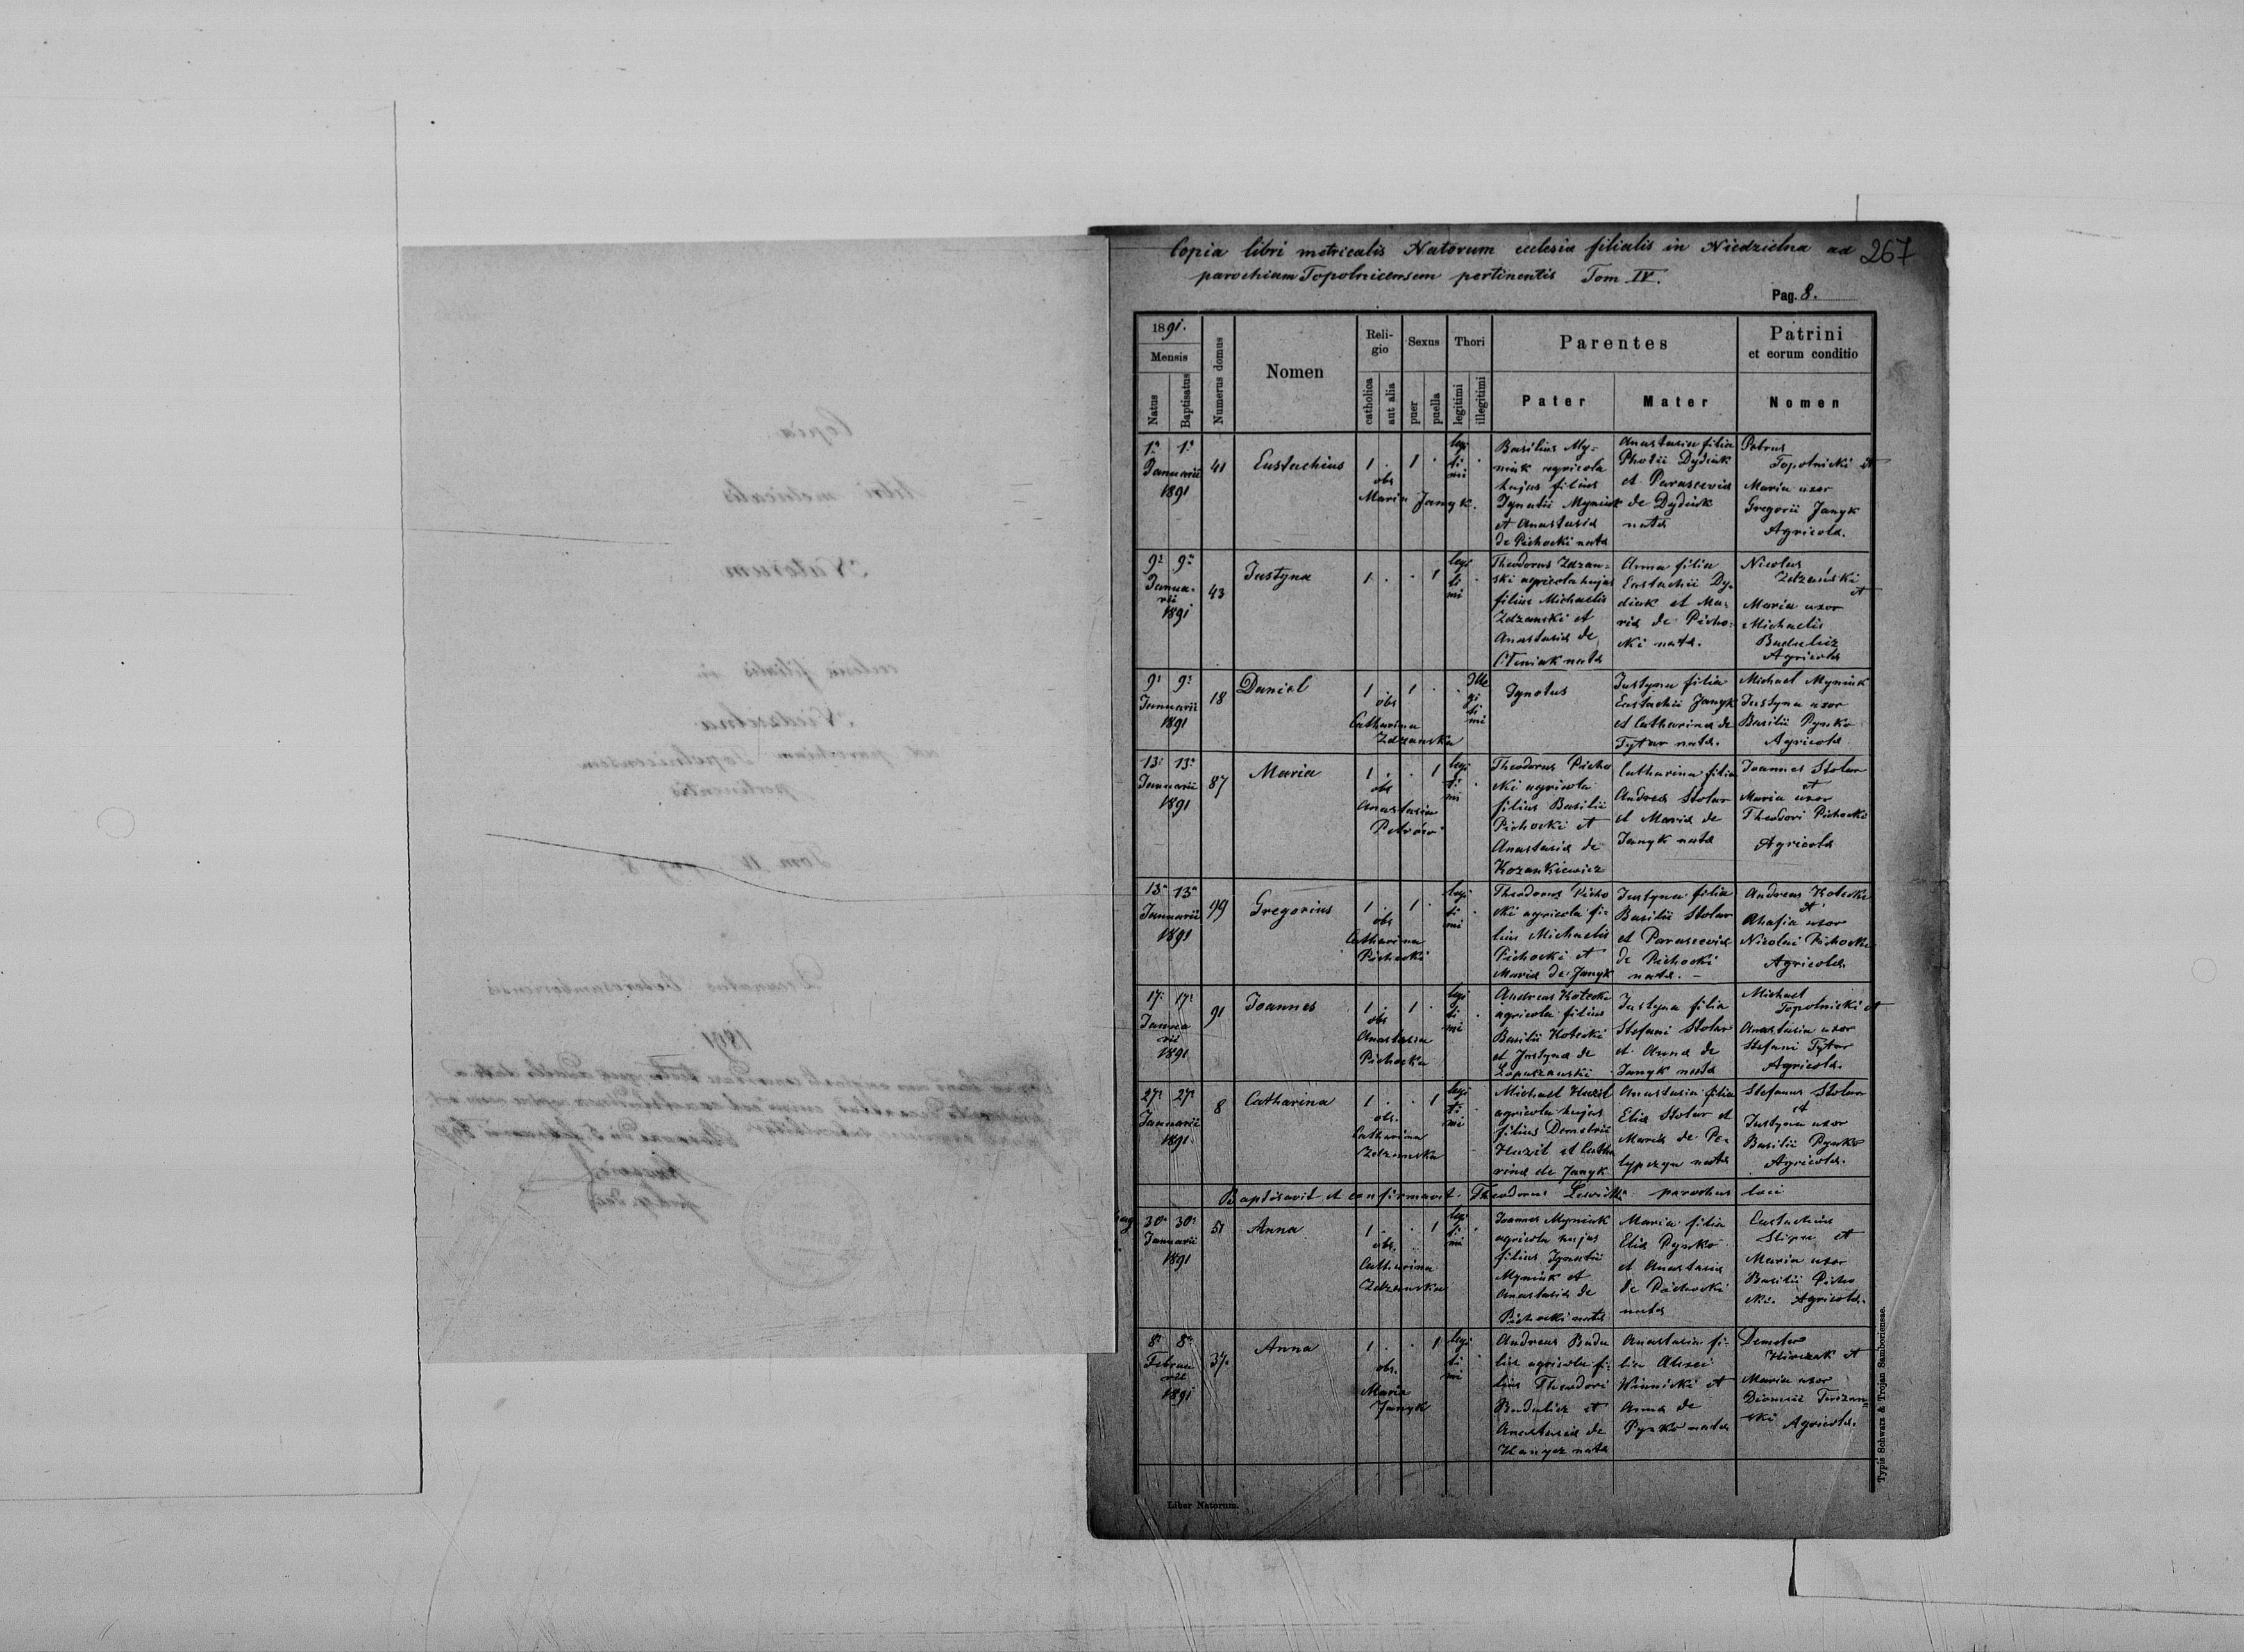 Copia libri metricalis Natorum ecclesia filialis in Niedzielna ad 267
parochiam Topolnicensem pertinentis Tom IV.
Pag. 8.
1891.
Mensis
Natus
Baptisatus
Numerus domus
Nomen
Reli-
gio
catholica
aut alia
Sexus
puer
puella
Thori
legitimi
illegitimi
Parentes
Pater
Mater
Patrini
et eorum conditio
Nomen
1a 1a
Januarii
1891
41
Eustachius
1 . 1 .
obs
Maria Janyk.
legi
ti
mi
Basilius My-
niuk agricola
hujus filius
Ignatii Myniuk
et Anastasia
de Pichocki nata
Anastasia filia
Photii Dydiak
et Parascevia
de Dydiak
nata
Petrus
Topolnicki et
Maria uxor
Gregorii Janyk
Agricola.
9a 9a
Janua-
rii
1891
43
Justyna
1 . . 1
legi
ti
mi
Theodorus Zdzan-
ski agricola hujus
filius Michaelis
Zdzanski et
Anastasia de
nata
Anna filia
Eustachii Dy-
diak et Ma-
ria de Picho-
cki nata.
Nicolaus
Zdzański
et
Maria uxor
Michaelis
Budulicz
Agricola
9a 9a
Januarii
1891
18
Daniel
1 . 1 .
obs
Catharina
Zdzanska
Ille
gi
ti
mi
Ignotus
Justyna filia
Eustachii Janyk
et Catharina de
Tytar nata.
Michael Myniuk
Justyna uxor
Basilii Pysko
Agricola
13a 13a
Januarii
1891
87
Maria
1 . . 1
obs
Anastasia
Petrów
legi
ti
mi
Theodorus Picho
cki agricola
filius Basilii
Pichocki et
Anastasia de
Kozankiewicz
Catharina filia
Andrea Stolar
et Maria de
Janyk nata
Joannes Stolar
et
Maria uxor
Theodori Pichocki
Agricola
13a 13a
Januarii
1891
99
Gregorius
1 . 1 .
obs
Catharina
Pichocki
legi
ti
mi
Theodorus Picho
cki agricola fi-
lius Michaelis
Pichocki et
Maria de Janyk
Justyna filia
Basilii Stolar
et Parascevia
de Pichocki
nata. -
Andreas Kotecki
et
Ahafia uxor
Nicolai Pichocki
Agricola.
17a 17a
Janua
rii
1891
91
Joannes
1 . 1 .
obs
Anastasia
Pichocka
legi
ti
mi
Andreas Kotecki
agricola filius
Basilii Kotecki
et Justyna de
Łopuszanski
Justyna filia
Stefani Stolar
et Anna de
Janyk nata
Michael
Topolnicki et
Anastasia uxor
Stefani Tytar
Agricola.
27a 27a
Januarii
1891.
8
Catharina
1 . . 1
obs.
Catharina
Zdzanska
legi
ti
mi
Michael Huzil
agricola hujus
filius Demetrii
Huzil et Catha
rina de Janyk
Anastasia filia
Elia Stolar et
Maria de Pe-
nata
Stefanus Stolar
et
Justyna uxor
Basilii Pysko
Agricola.
Baptisavit et confirmavit Theodorus parochus loci
30a 30a
Januarii
1891
51
Anna
1 . . 1
obs.
Catharina
Zdzanska
legi
ti
mi
Joannes Myniuk
agricola hujus
filius Ignatii
Myniuk et
Anastasia de
Pichocki nata
Maria filia
Elia Pysko
et Anastasia
de Pichocki
nata
Eustachius
et
Maria uxor
Basilii Picho
cki. Agricola.
8a 8a
Februa
rii
1891
37.
Anna
1 . . 1
obs.
Maria
Janyk
legi
ti
mi
Andreas Budu
licz agricola fi-
lius Theodori
Budulicz et
Anastasia de
nata
Anastasia fi-
lia Alexii
Winnicki et
Anna de
Pysko nata
Demeter
et
Maria uxor
Dionisii Turzan-
ski Agricola.
Liber Natorum.
Typis Schwarz & Trojan Samboriensae.
Copia
libri metricalis
Natorum
ecclesia filialis in
Niedzielna
ad parochiam Topolnicensem
pertinentis
Tom IV pag 8
Decanatus
1891.